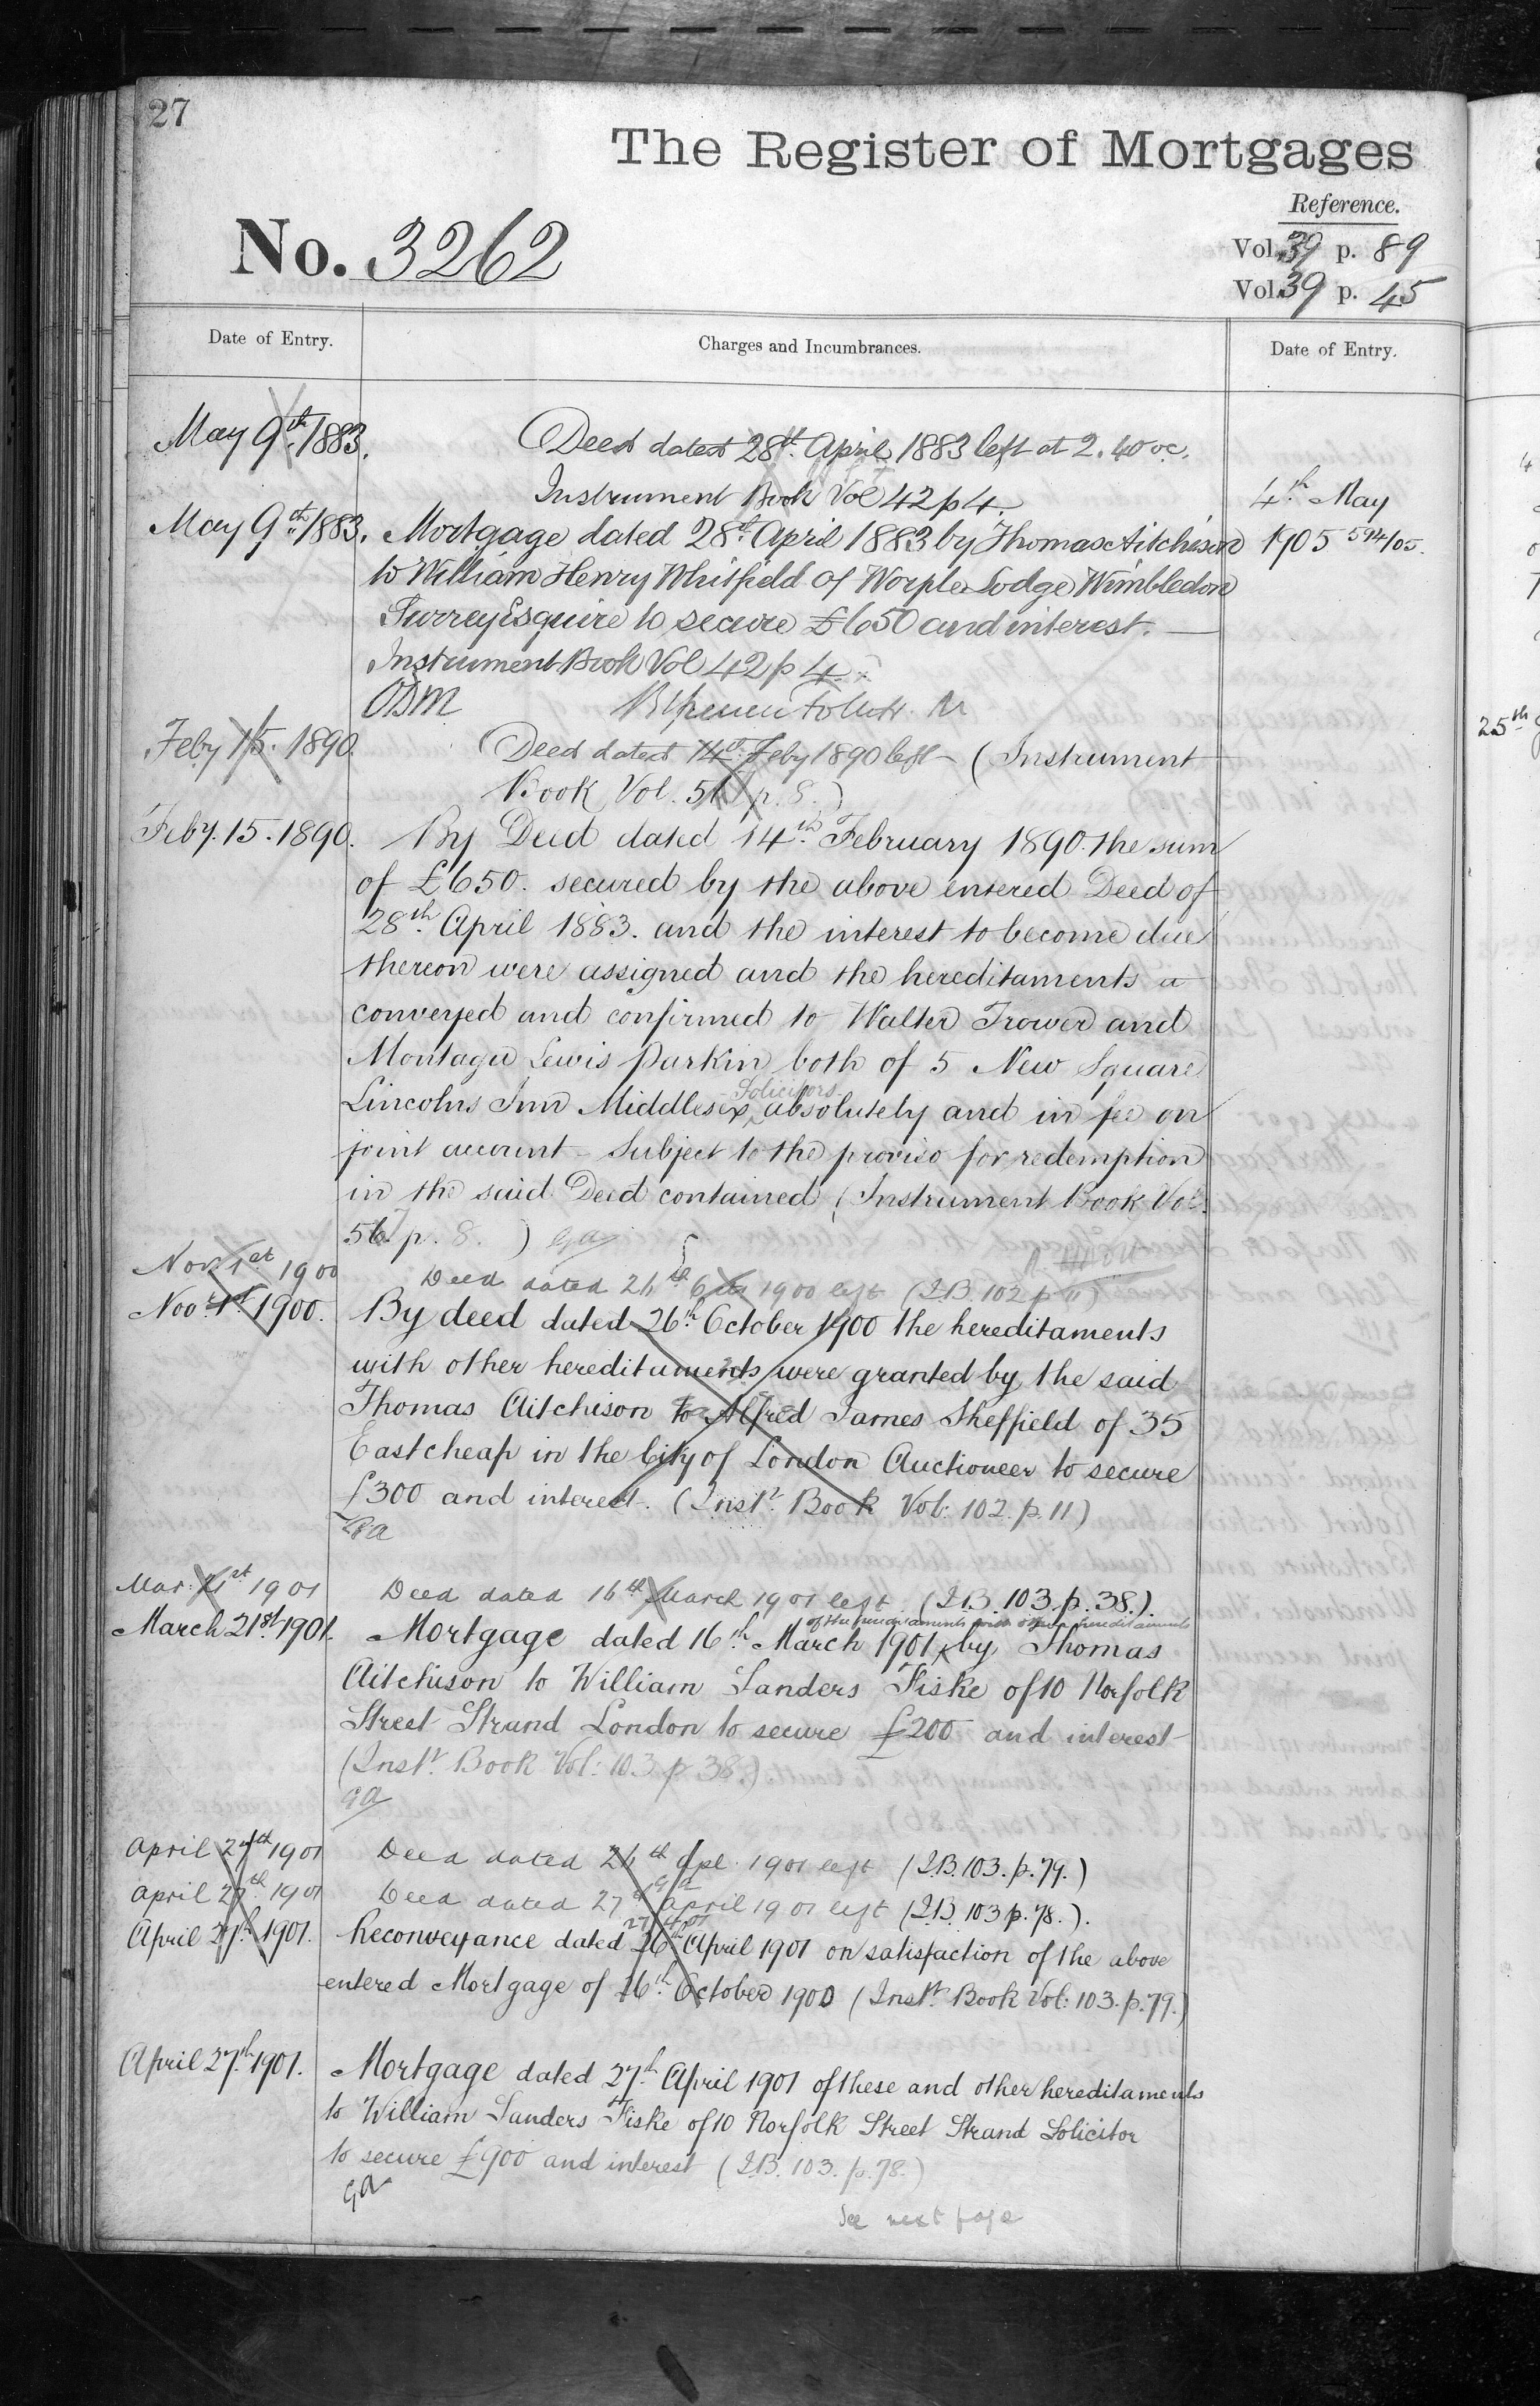 27
The Register of Mortgages
Reference.
No. 3262
Vol. 39 p. 89
Vol. 39 p. 45
Date of Entry.
Charges and Incumbrances.
Date of Entry.
May 9th 1883.
Deed dated 28th April 1883 left at 2.40 oc.
Instrument Book Vol 42 p 4.
4th May
1905 594/05.
May 9th 1883. Mortgage dated 28th April 1883 by Thomas Aitchison
to William Henry Whitfield of Worple Lodge Wimbledon
Surrey Esquire to secure £650 and interest. —
Instrument Book Vol 42 p 4.
Feby 15. 1890.
Deed dated 14th Feby 1890 left - (Instrument
Book Vol. 56 p. 8.)
Feby. 15. 1890. By Deed dated 14th February 1890. the sum
of £650. secured by the above entered Deed of
28th April 1883. and the interest to become due
thereon were assigned and the hereditaments
conveyed and confirmed to Walter Trower and
Montagu Lewis Parkin both of 5 New Square
Solicitors
Lincolns Inn Middlesex absolutely and in fee on
joint account - Subject to the proviso for redemption
in the said Deed contained (Instrument Book Vol.
56 p. 8. ) GA
Nov 1st 1900
Deed dated 26th 1900 left (I.B. 102 p 11)
Nov. 1st 1900. By deed dated 26th October 1900 the hereditaments
with other hereditaments were granted by the said
Thomas Aitchison to Alfred James Sheffield of 35
Eastcheap in the City of London Auctioneer to secure
£300 and interest. (Inst. Book Vol: 102. p. 11)
GA
Mar: 21st 1901
Deed dated 16th March 1901 left. (I.B. 103. p. 38.).
of the hereditaments with other hereditaments
March 21st 1901. Mortgage dated 16th March 1901 by Thomas
Aitchison to William Sanders Fiske of 10 Norfolk
Street Strand London to secure £200 and interest
(Inst. Book Vol: 103 p 38.)
GA
April 27th 1901
Deed dated 26th Apl. 1901 left (I.B. 103. p. 79.)
April 27th 1901
Deed dated 27th April 1901 left (I.B. 103 p. 78.).
April 27th 1901. Reconveyance dated 26th April 1901 on satisfaction of the above
entered Mortgage of 26th October 1900 (Inst. Book Vol: 103. p. 79.)
April 27th 1901. Mortgage dated 27th April 1901 of these and other hereditaments
to William Sanders Fiske of 10 Norfolk Street Strand Solicitor
to secure £900 and interest (I.B. 103. p. 78.)
GA
See next page
25th